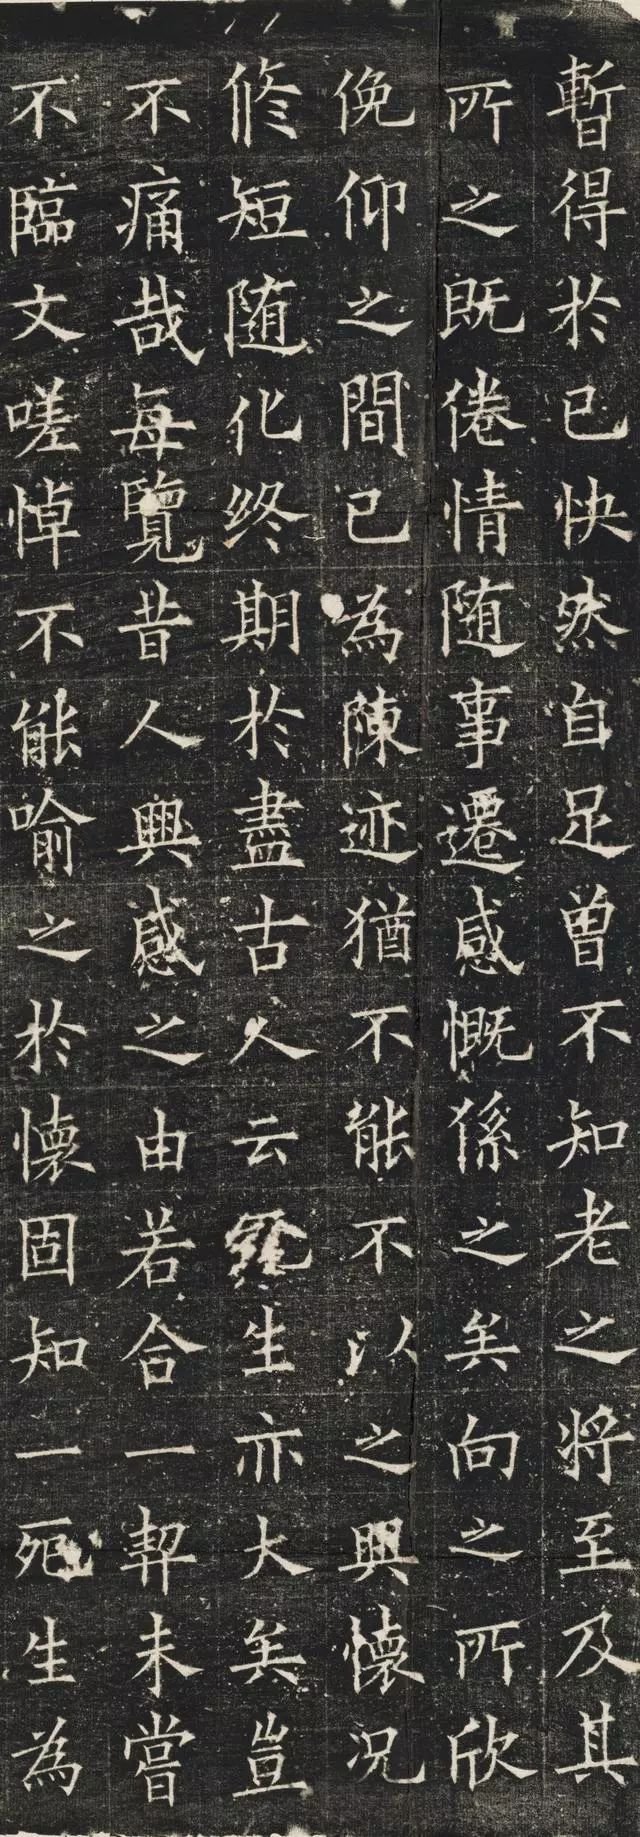 暫得於己快然自足曽不知老之将至及其
所之既倦情随事遷感慨係之矣向之所欣
俛仰之間已為陳迹猶不能不以之興懐况
修短随化終期於盡古人云死生亦大矣豈
不痛哉每覽昔人興感之由若合一契未嘗
不臨文嗟悼不能喻之於懐固知一死生為